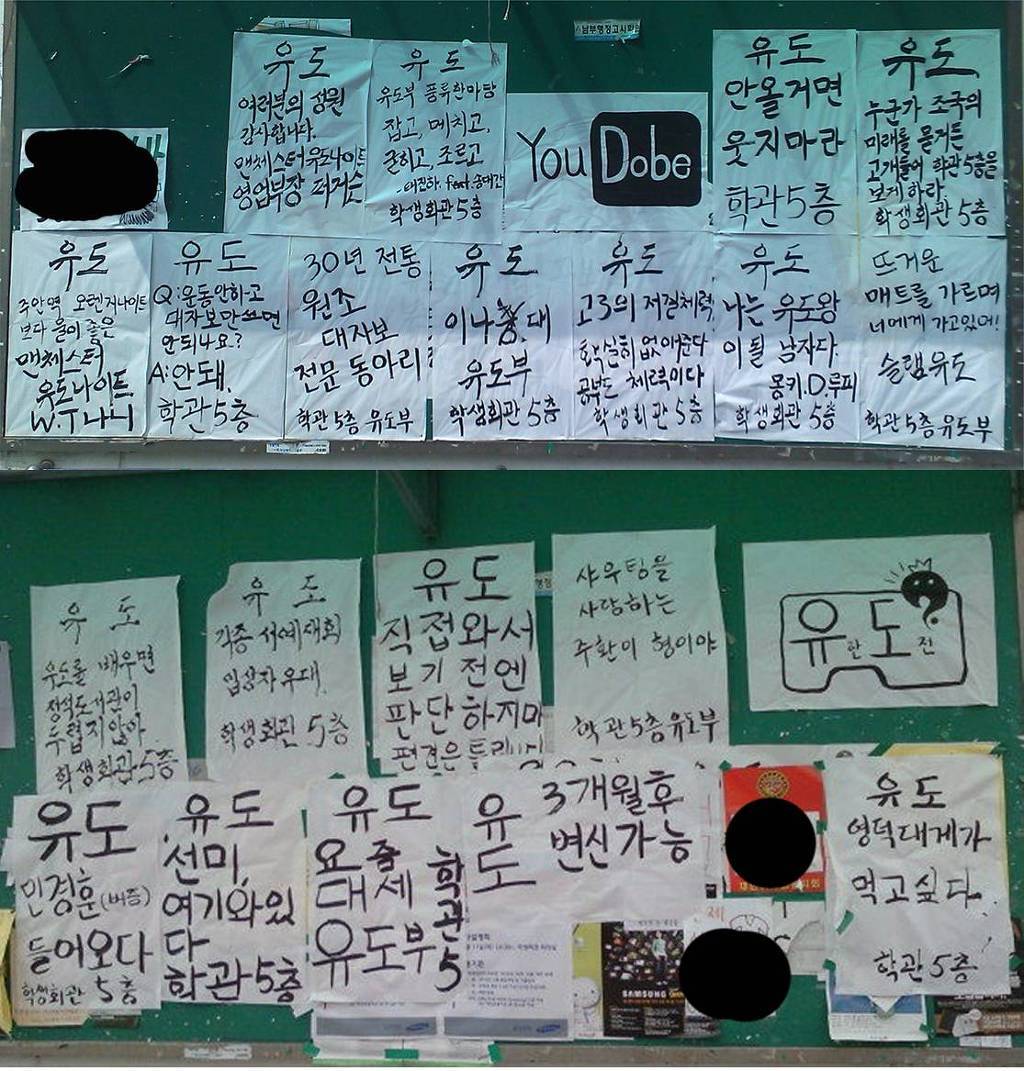 유도
여러분의 성원
감사합니다.
맨체스터 유도나이트
영업부장 퍼거슨
유도
유도부 풍류한마당
잡고, 메치고,
굳히고, 조르고
학생회관 5층
YouDobe
유도
안올거면
웃지마라
학관 5층
유도
누군가 조국의
미래를 묻거든
고개들어 학관 5층을
보게 하라.
학생회관 5층
유도
주안역 오렌지나이트
보다 물이 좋은
맨체스터
유도나이트
W.T루니
유도
Q:운동안하고
대자보만쓰면
안되나요?
A:안돼.
학관 5층
30년 전통
원조
대자보
전문 동아리
학관 5층 유도부
유도
이나충.대
유도부
학생회관 5층
유도
고3의 저질체력
확실히 없애준다
공부도 체력이다
학생회관 5층
유도
나는 유도왕
이 될 남자다.
몽키.D.루피
학생회관 5층
뜨거운
매트를 가르며
너에게 가고있어!
슬램유도
학관 5층 유도부
유도
유도를 배우면
정석도서관이
두렵지않아.
학생회관 5층
유도
각종 서예대회
입상자 우대.
학생회관 5층
유도
직접와서
보기 전엔
판단하지마
편견은
샤우팅을
사랑하는
주환이 형이야
학관 5층 유도부
유한도전
유도
민경훈(버즈)
들어오다
학생회관 5층
유도
선미,
여기와있
다
학관 5층
유도
요즘
대세
유도부
학관5
유도
3개월후
변신가능
SAMSUNG
유도
영덕대게가
먹고싶다.
학관 5층